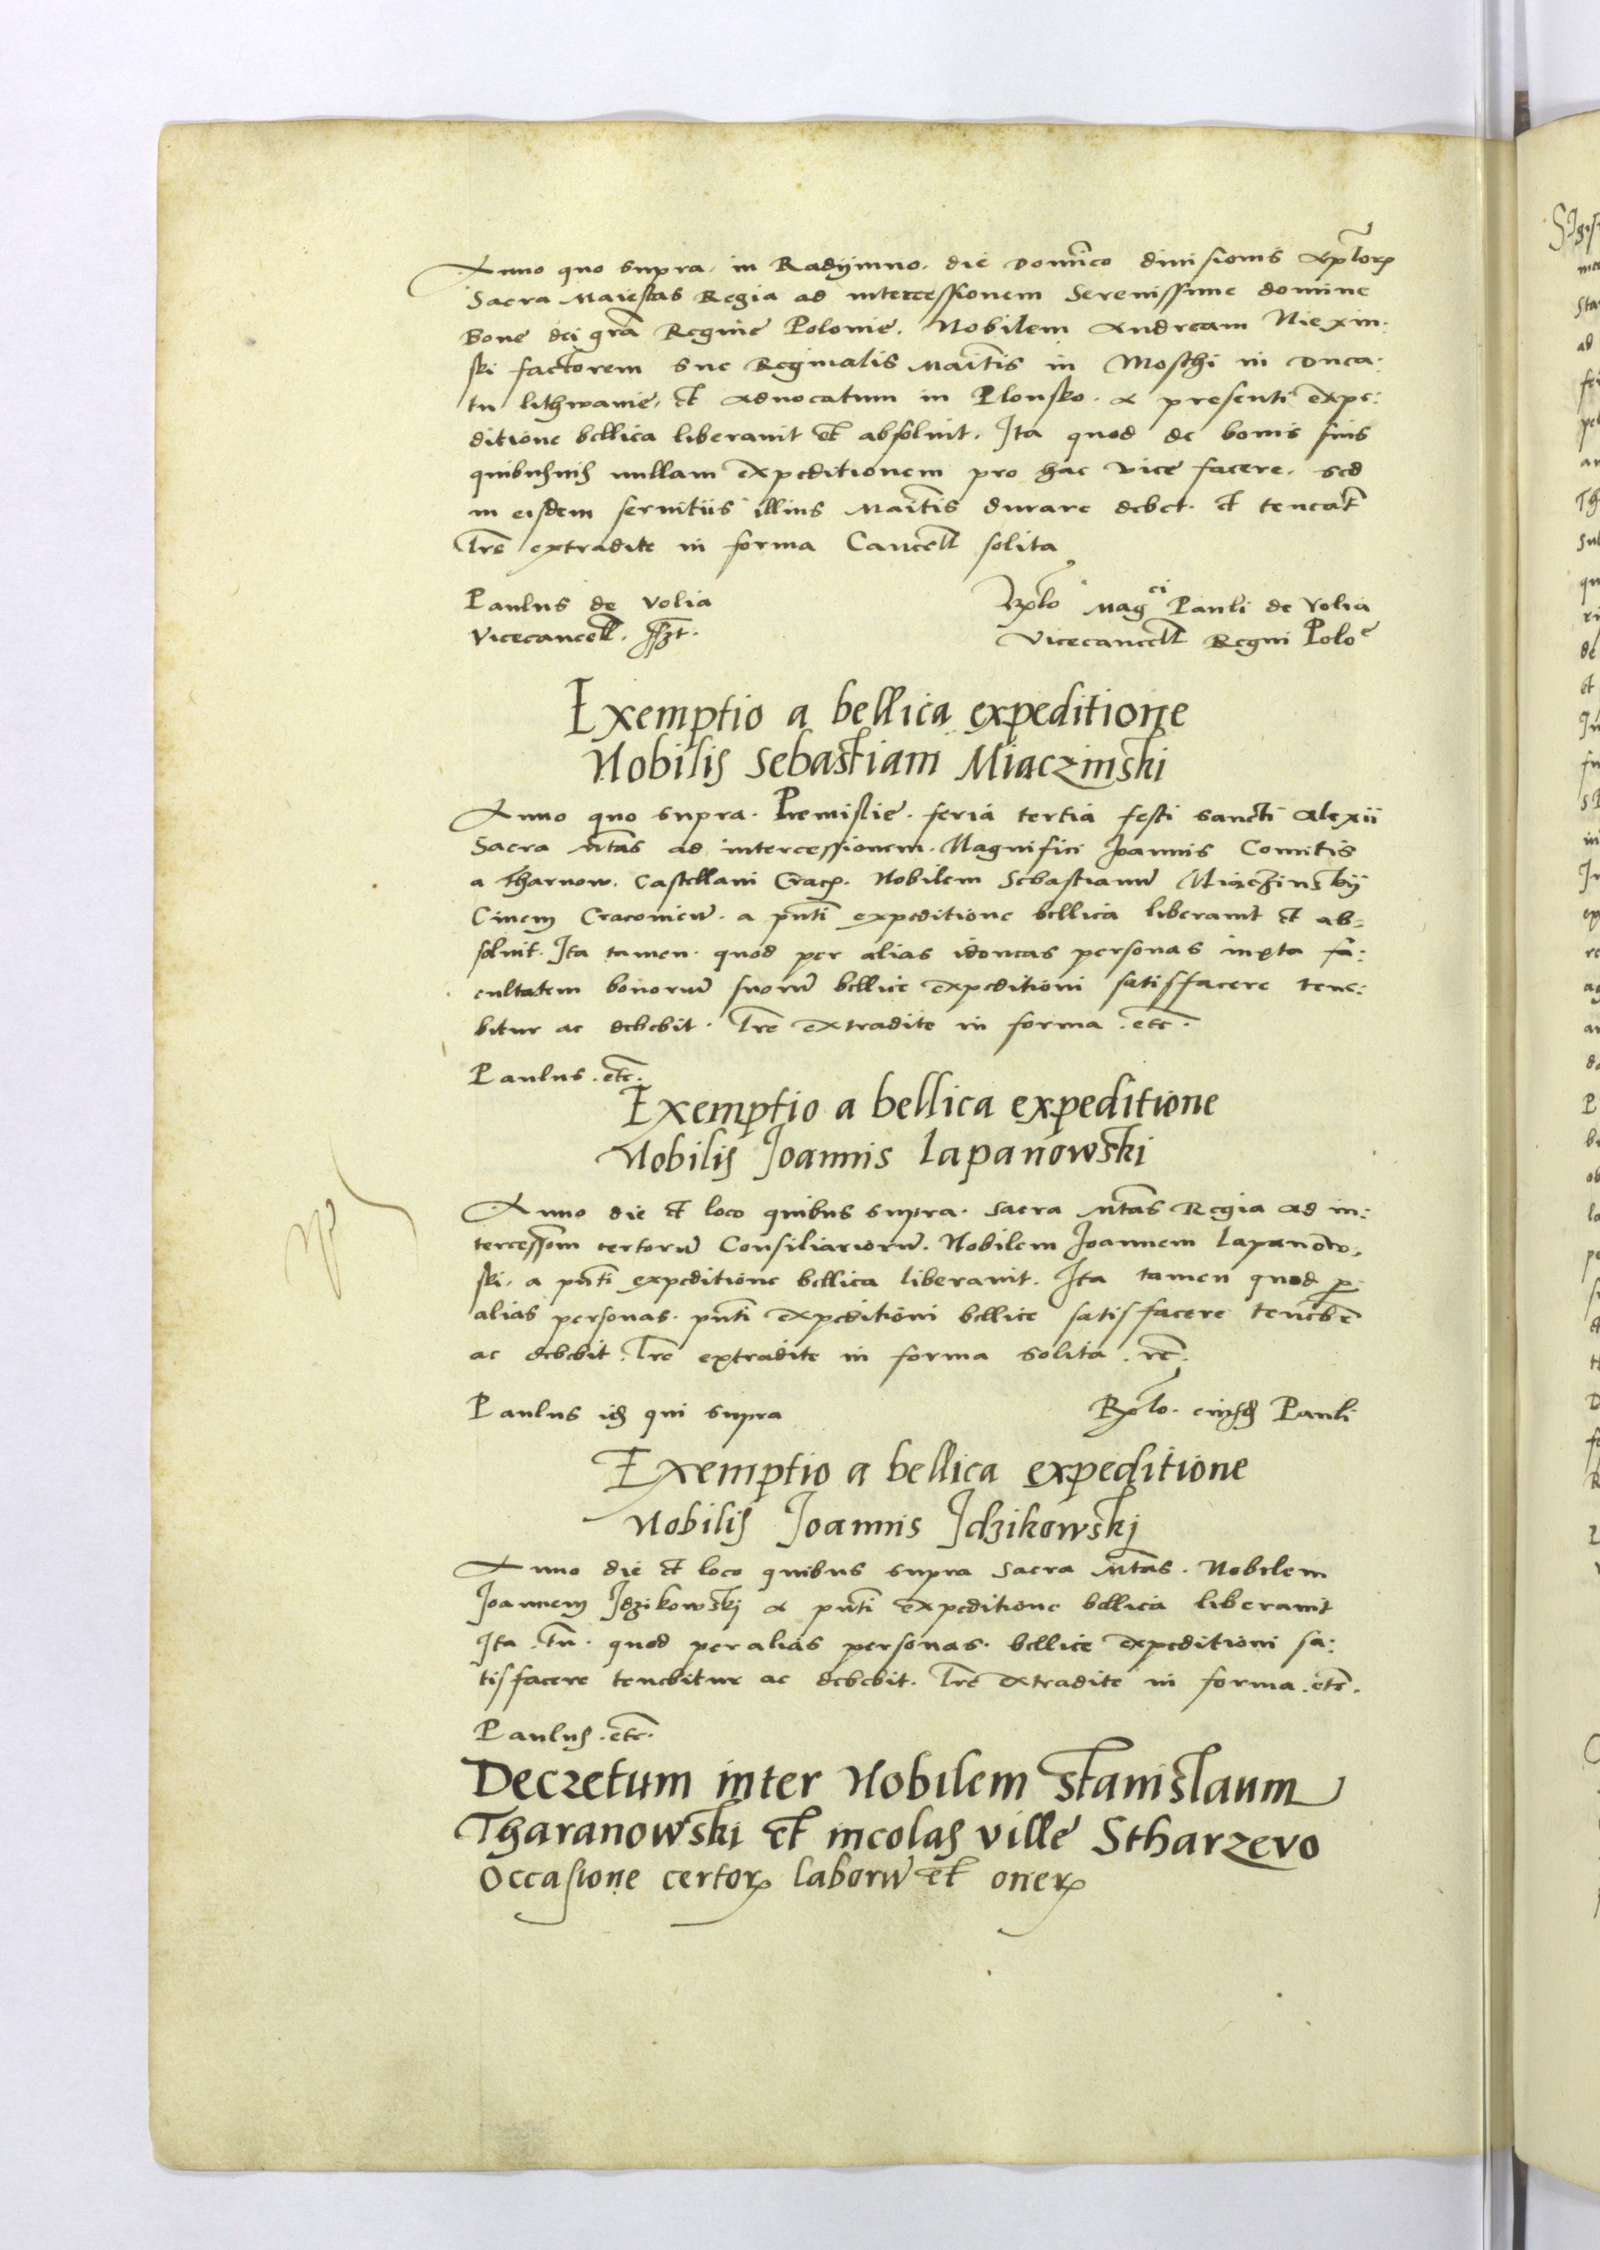 Anno quo supra. in Radijmno. die Domĩco diuisionis Apłorꝝ
Sacra Maiestas Regia ad intercessionem Serenissime domine
Bone dei grã Regine Polonie. Nobilem Andream Niexin:
ski factorem sue Reginalis Maĩtis in Moschi in Duca:
tu lithwanie, et Aduocatum in Plonsko. a presenti expe:
ditione bellica liberauit et absoluit. Ita quod de bonis suis
quibusuis nullam expeditionem pro hac vice facere. sed
in eisdem seruitiis illius Maĩtis durare debet. et teneat̃
Lr̃e extradite in forma Cancełł solita
Paulus de Volia
Vicecancełł. sszt.
Rełło Mag^ci Pauli de Volia
Vicecancełł Regni Polo^e
Exemptio a bellica expeditione
Nobilis Sebastiani Miaczinski
Anno quo supra. Premislie. feria tertia festi sancti Alexii
Sacra Mt̃as ad intercessionem. Magnifici Joannis Comitis
a Tharnow. Castellani Cracꝝ. Nobilem Sebastianũ Miaczinskij
Ciuem Cracouieñ. a pñti expeditione bellica liberauit et ab=
soluit. Ita tamen. quod per alias idoneas personas iuxta fa:
cultatem bonorũ suorũ bellice expeditioni satisfacere tene:
bitur ac debebit. Lr̃e extradite in forma. etc̃.
Paulus. etc̃.
Exemptio a bellica expeditione
Nobilis Joannis Lapanowski
Anno die et loco quibus supra. Sacra Mt̃as Regia ad in:
tercessiom̃ certorũ Consiliariorũ. Nobilem Joannem Lapanow,
ski. a pñti expeditione bellica liberauit. Ita tamen quod ꝑ
alias personas. pñti expeditioni bellice satisfacere teneb̃r
ac debebit. Lr̃e extradite in forma solita. etc̃.
Paulus idꝫ qui supra
Rełło. eiusdꝫ Pauli
Exemptio a bellica expeditione
Nobilis Joannis Jdzikowskj
Anno die et loco quibus supra Sacra Mt̃as. Nobilem
Joannem Jdzikowskj a pñti expeditione bellica liberauit
Ita tñ. quod per alias personas. bellice expeditioni sa:
tisfacere tenebitur ac debebit. Lr̃e extradite in forma. etc̃.
Paulus. etc̃.
Decretum inter Nobilem Stanislaum
Tharanowski et incolas ville Stharzevo
Occasione certorꝝ laborũ et onerꝝ